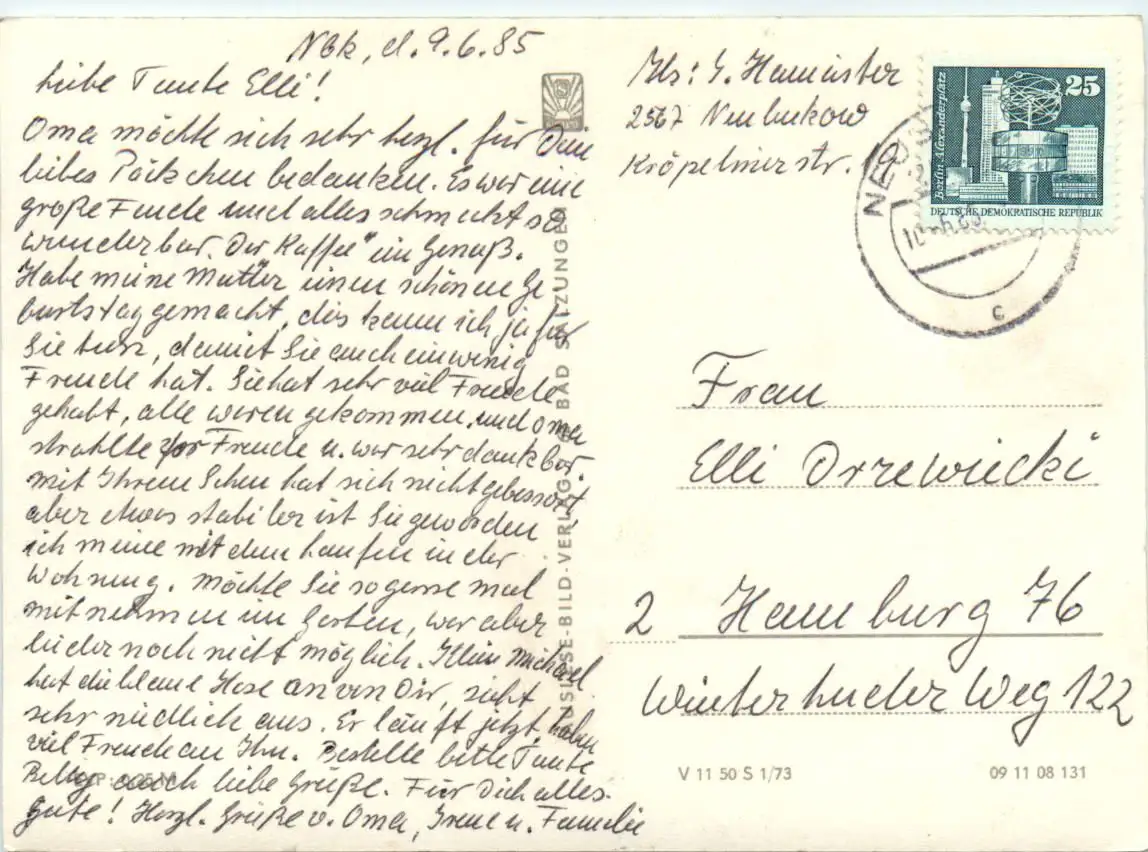 Nbk, d. 9.6.85
Liebe Tante Elli!
Oma möchte sich sehr herzl. für Dein
liebes Päckchen bedanken. Es war eine
große Freude und alles schmeckt so
wunderbar. Der Kaffee ein Genuß.
Habe meine Mutter einen schönen Ge
burtstag gemacht, das kann ich ja für
Sie tun, damit Sie auch ein wenig
Freude hat. Sie hat sehr viel Freude
gehabt, alle waren gekommen, und Oma
strahlte vor Freude u. war sehr dankbar.
mit Ihrem Sehen hat sich nicht gebessert,
aber etwas stabiler ist Sie geworden
ich meine mit dem laufen in der
Wohnung. Möchte Sie so gerne mal
mitnehmen im Garten, war aber
leider noch nicht möglich. Klein Michael
hat die blaue Hose an von Dir, sieht
sehr niedlich aus. Er läuft jetzt, haben
viel Freude an Ihm. Bestelle bitte Tante
Betty auch liebe Grüße. Für Dich alles
gute! Herzl. Grüße v. Oma, Irene u. Familie
AUSLESE-BILD-VERLAG BAD SALZUNGEN
Abs: I. Hameister
2567 Neubukow
Kröpelinerstr.
25
Berlin, Alexanderplatz
DEUTSCHE DEMOKRATISCHE REPUBLIK
c
Frau
Elli Orzewicki
2 Hamburg 76
Winterhuder Weg 122
V 11 50 S 1/73
09 11 08 131